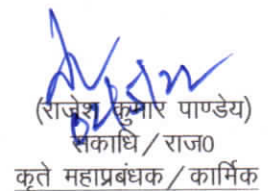 (राजेश कुमार पाण्डेय)
सकाधि / राज0
कृते महाप्रबंधक / कार्मिक